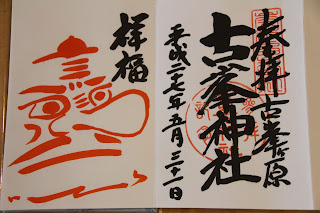 奉拝 古峯ヶ原
古峯神社
平成二十七年五月三十一日
祥福